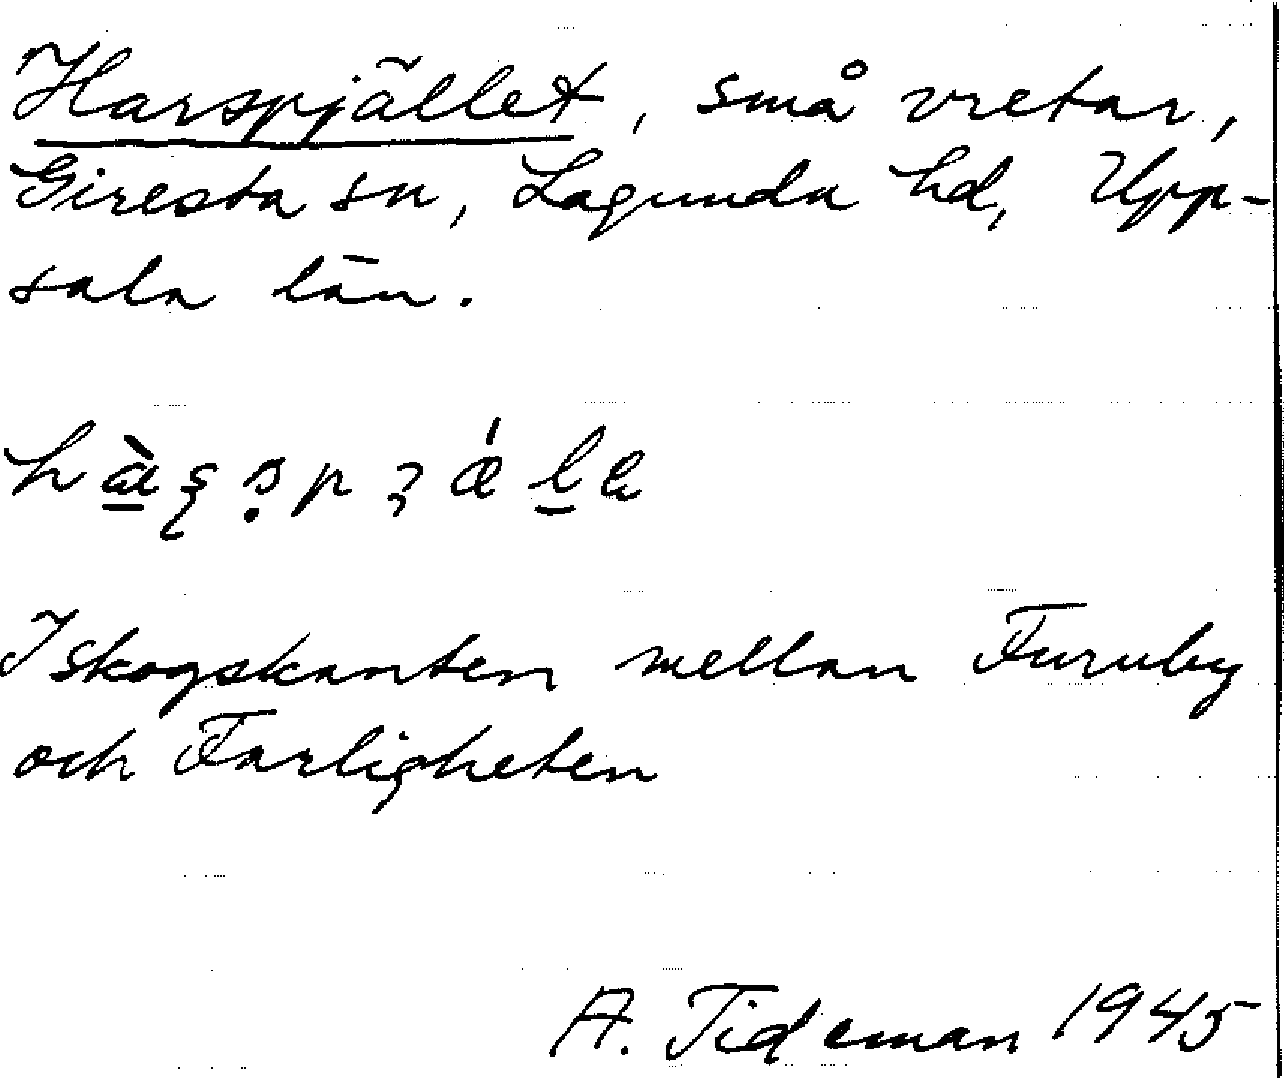 Harspjället, små vretar,
Giresta sn, Lagunda hd, Upp-
sala län.
I skogskanten mellan Furuby
och Farligheten
A. Tideman 1945